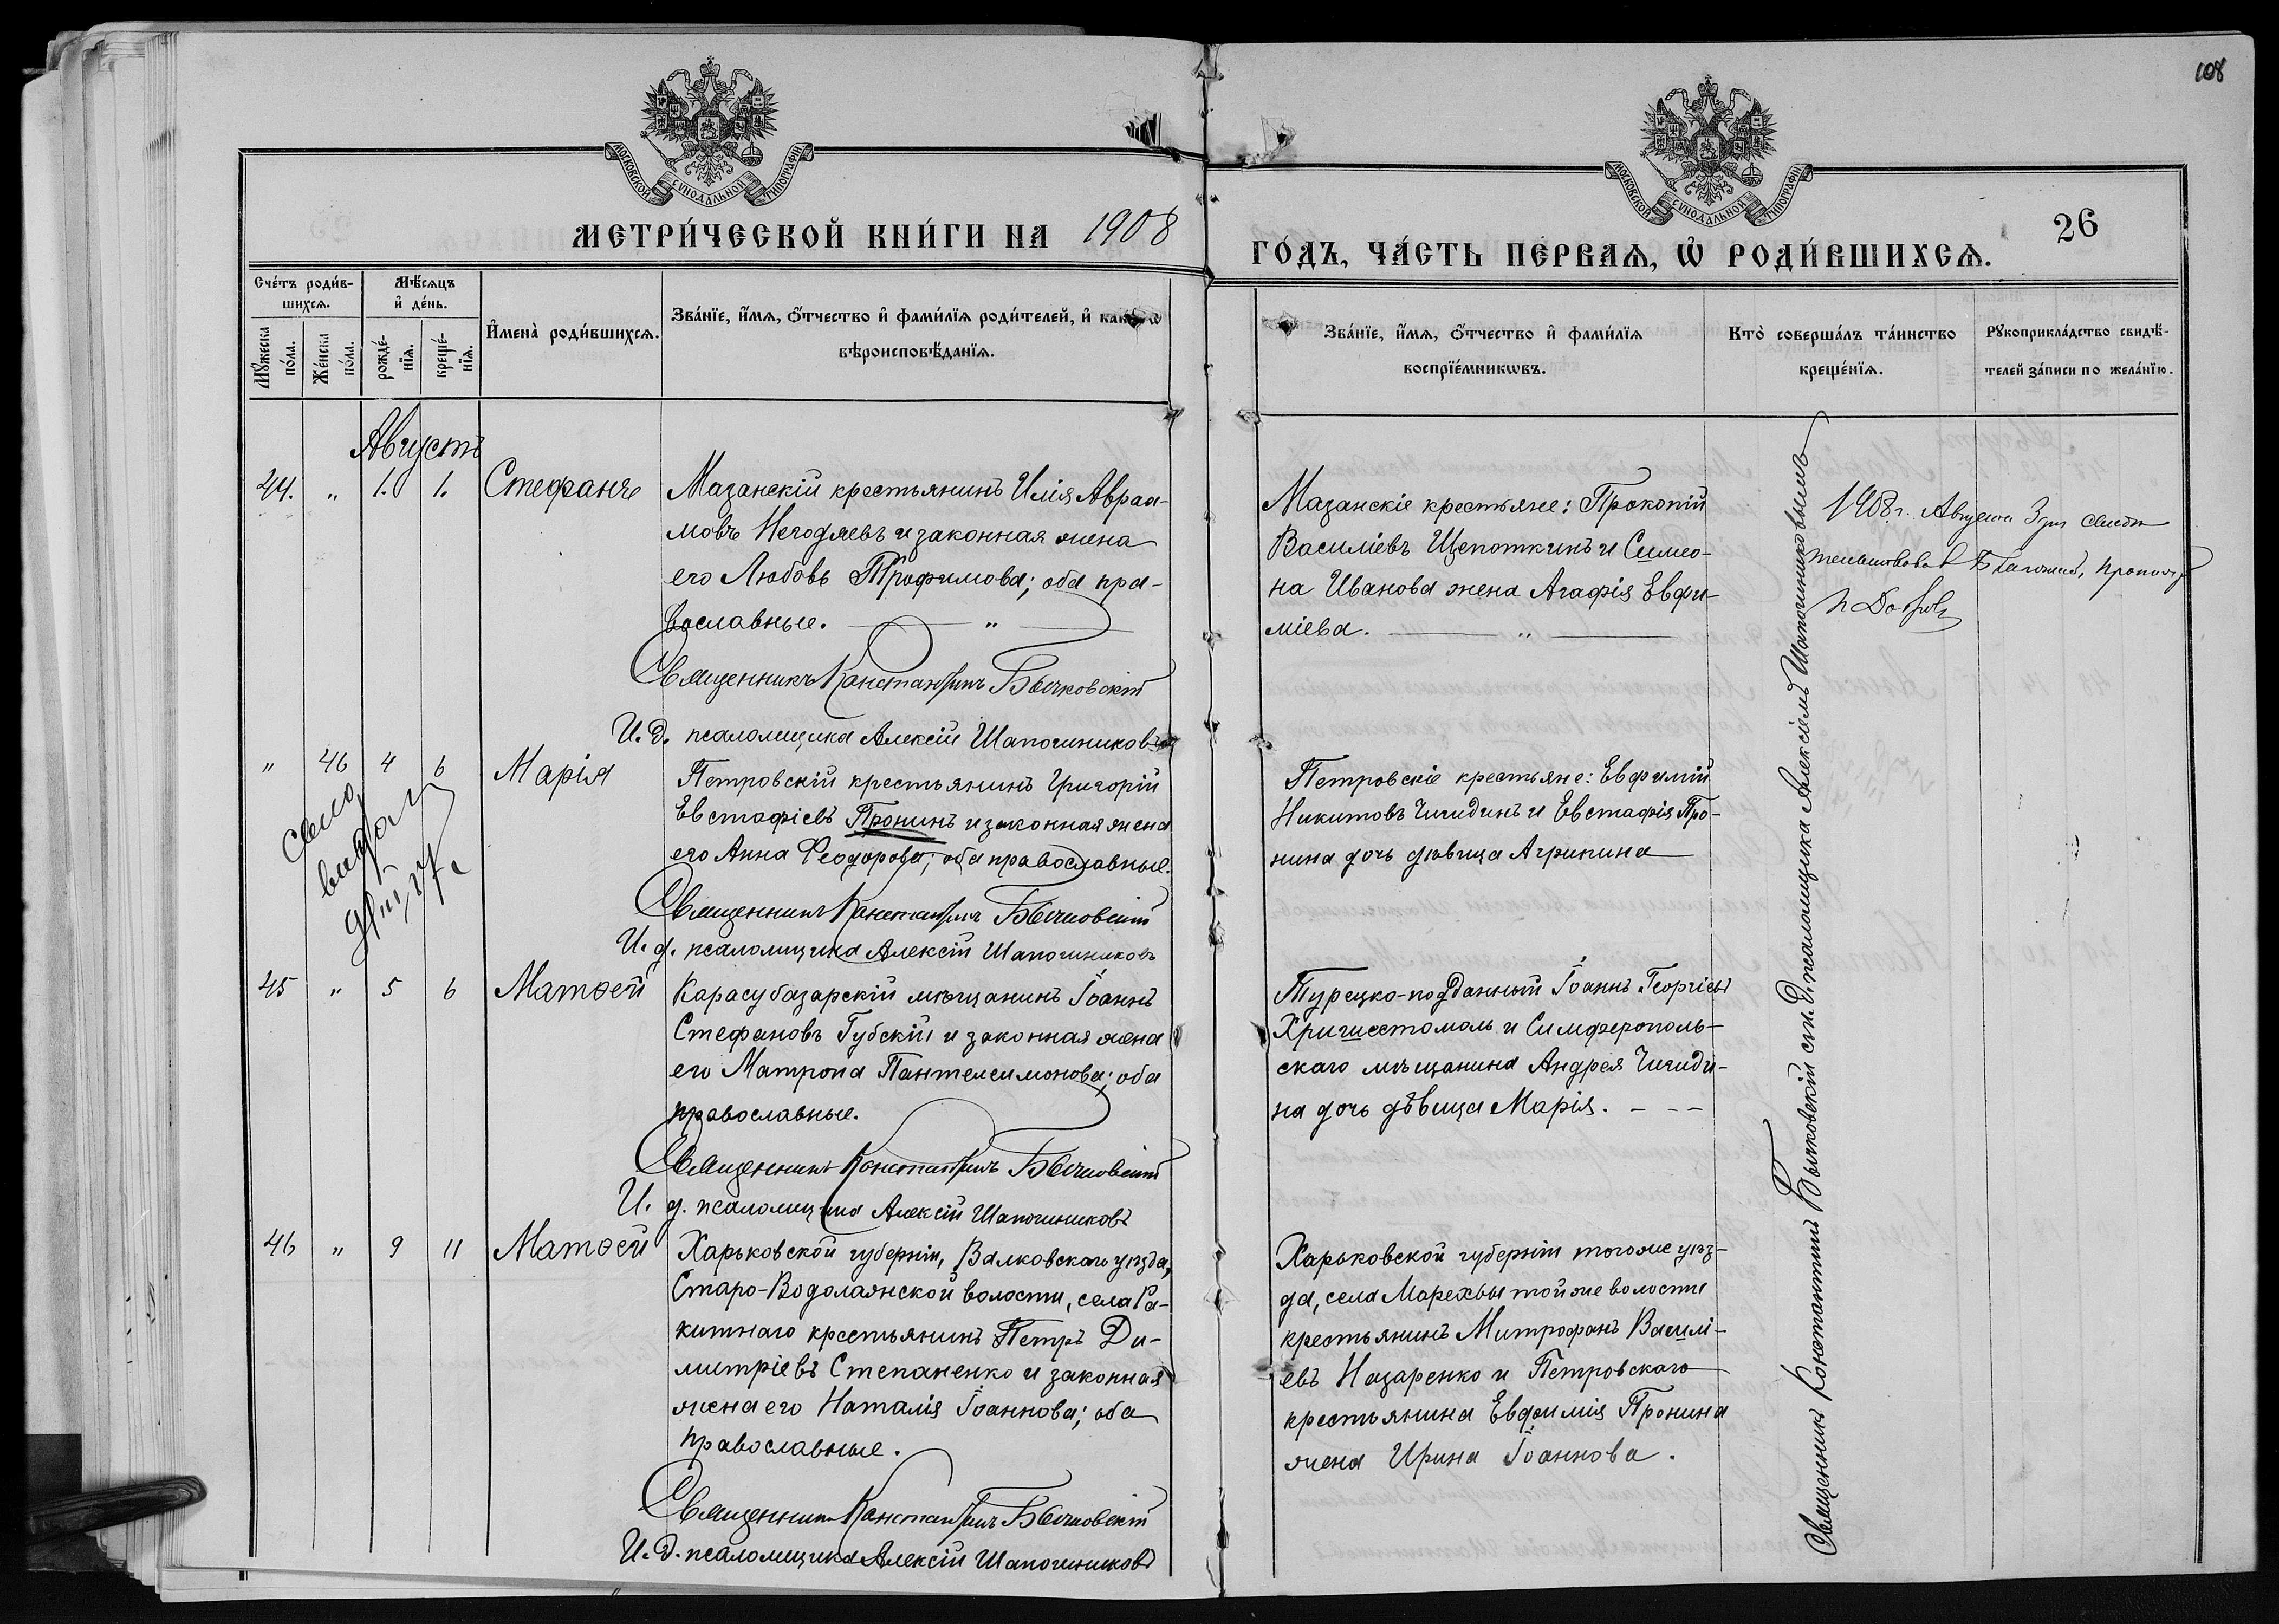 108
МОСКОВСКОЙ СѴНОДАЛЬНОЙ ТИПОГРАФІИ
МОСКОВСКОЙ СѴНОДАЛЬНОЙ ТИПОГРАФІИ
МЕТРИ́ЧЕСКОЙ КНИ́ГИ НА 1908
ГО́ДЪ, ЧА́СТЬ ПЕ́РВАѦ, Ѡ҆ РОДИ́ВШИХСѦ.
26
Сче́тъ роди́в-
шихсѧ.
Мѣ́сѧцъ
и҆ де́нь.
Мꙋ́жеска
по́ла.
Же́нска
по́ла.
рожде́-
нїѧ.
креще́-
нїѧ.
И҆мена̀ роди́вшихсѧ.
Зва́нїе, и҆́мѧ, ѻ҆́тчество и҆ фами́лїѧ роди́телей, и҆
вѣроисповѣ́данїѧ.
Зва́нїе, и҆́мѧ, ѻ҆́тчество и҆ фами́лїѧ
воспрїе́мникѡвъ.
Кто̀ соверша́лъ та́инство
креще́нїѧ.
Рꙋкоприкла́дство свидѣ́-
телей за́писи по жела́нїю.
Августъ
44. " 1. 1. Стефанъ
Мазанскій крестьянинъ Илія Авраа-
мовъ Негодяевъ и законная жена
его Любовь Трофимова; оба пра-
вославные. — " —
Священникъ Константинъ Бычковскій
И. д. псаломщика Алексій Шапошниковъ
Мазанскіе крестьяне: Прокопій
Василіевъ Щепоткинъ и Симео-
на Иванова жена Агафія Евфи-
міева. — " —
1908 г. Августа 3 дня свидѣ
тельствовалъ Благочин.
" 46 4 6 Марія
Петровскій крестьянинъ Григорій
Евстафіевъ Пронинъ и законная жена
его Анна Феодорова; оба православные.
Священникъ Константинъ Бычковскій
И. д. псаломщика Алексій Шапошниковъ
Петровскіе крестьяне: Евфимій
Никитовъ Чигидинъ и Евстафія Про-
нина дочь дѣвица Агрипина
45 " 5 6 Матѳей
Карасубазарскій мѣщанинъ Іоаннъ
Стефановъ Губскій и законная жена
его Матрона Пантелеимонова; оба
православные.
Священникъ Константинъ Бычковскій
И. д. псаломщика Алексій Шапошниковъ
Турецко-подданный Іоаннъ Георгіевъ
и Симферополь-
скаго мѣщанина Андрея Чигиди-
на дочь дѣвица Марія. - - -
46 " 9 11 Матѳей
Харьковской губерніи, Валковскаго уѣзда,
Старо-Водолажской волости, села Ра-
китнаго крестьянинъ Петръ Ди-
митріевъ Степаненко и законная
жена его Наталія Іоаннова; оба
православные.
Священникъ Константинъ Бычковскій
И. д. псаломщика Алексій Шапошниковъ
Харьковской губерніи тогоже уѣз-
да, села Марехвы тойже волости
крестьянинъ Митрофанъ Василі-
евъ Назаренко и Петровскаго
крестьянина Евфимія Пронина
жена Ирина Іоаннова.
Священникъ Константинъ Бычковскій съ и. д. псаломщика Алексіемъ Шапошниковымъ